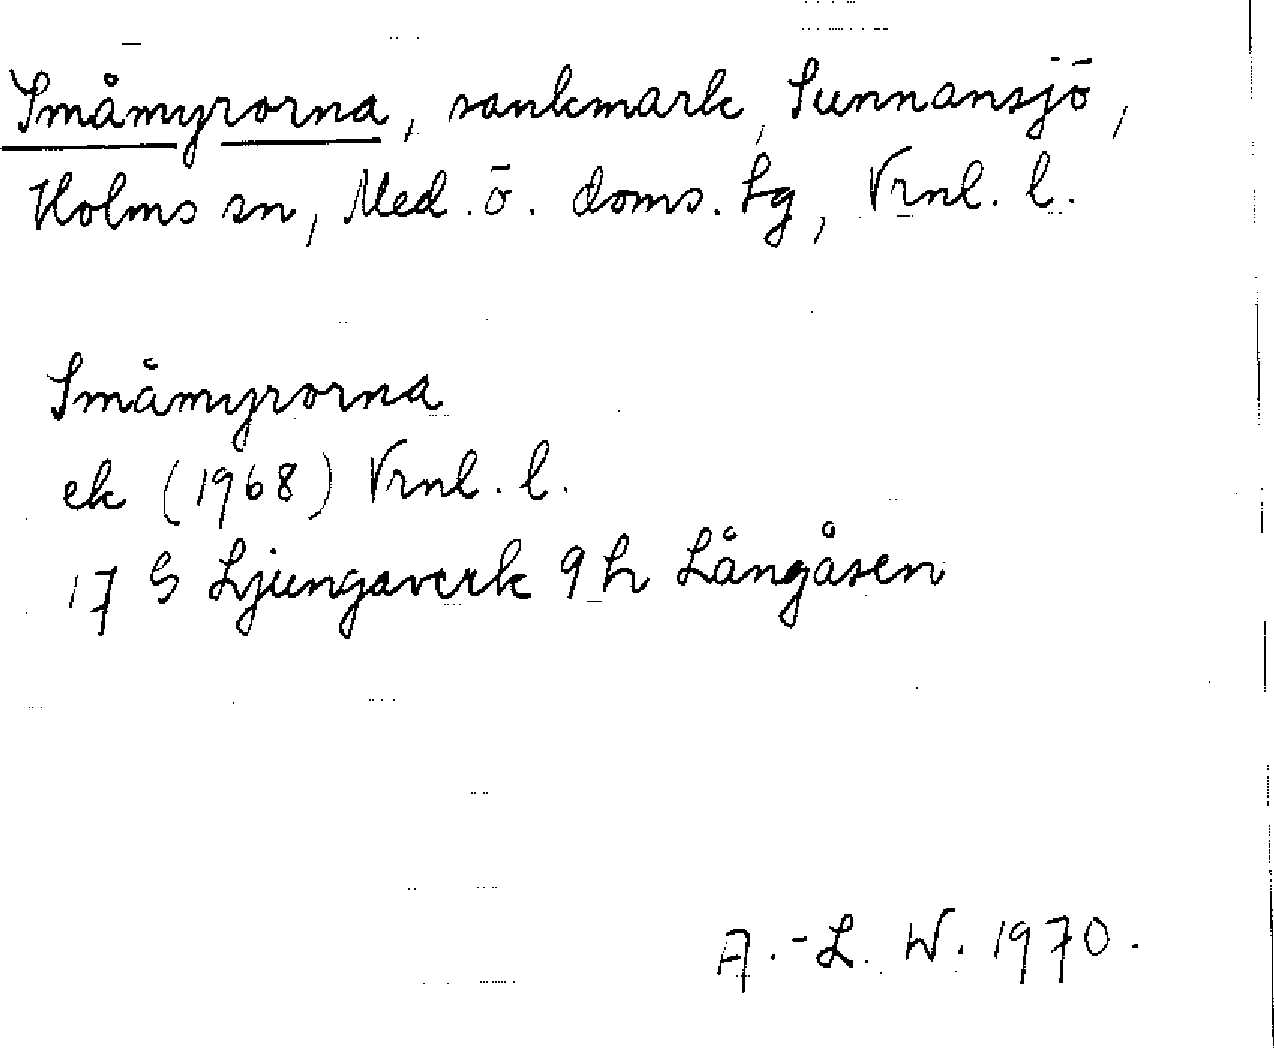 Småmyrorna, sankmark, Sunnansjö,
Holms sn, Med. ö. doms. tg, Vrnl. l.
Småmyrorna
ek (1968) Vrnl. l.
17 G Ljungaverk 9 h Långåsen
A.-L. W. 1970.